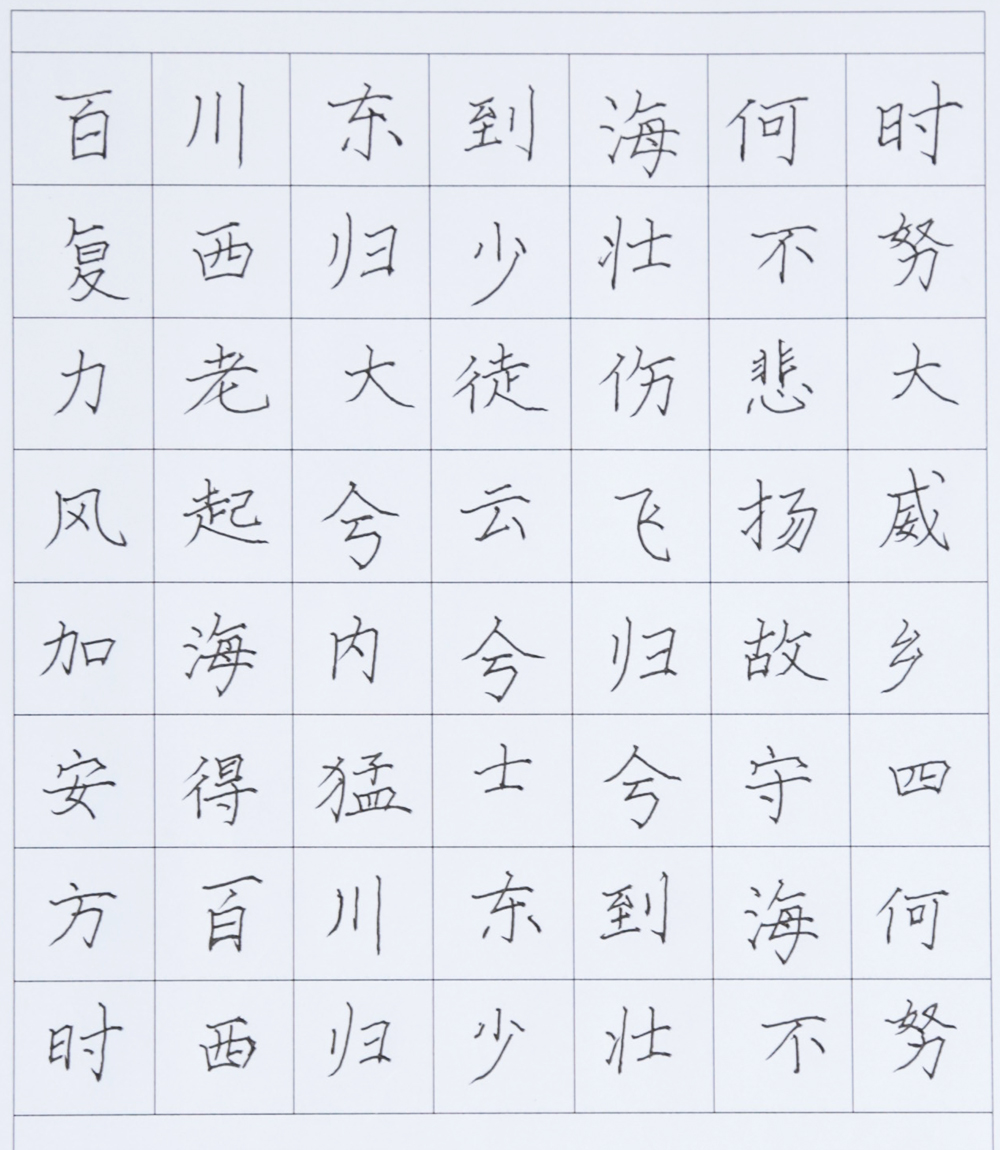 百川东到海何时
复西归少壮不努
力老大徒伤悲大
风起兮云飞扬威
加海内兮归故乡
安得猛士兮守四
方百川东到海何
时西归少壮不努